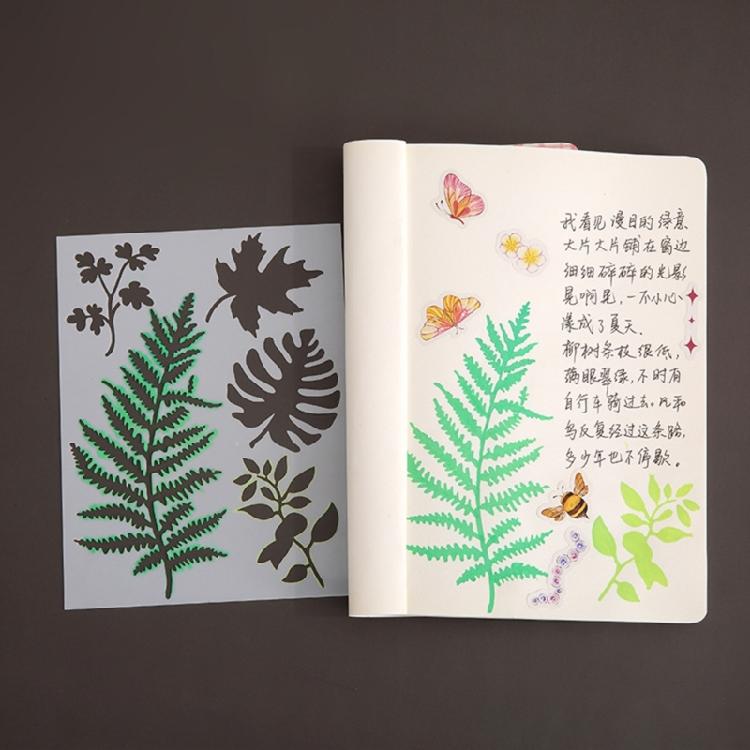 我看见漫目的绿意
大片大片铺在窗边
细细碎碎的光影
晃啊晃，一不小心
晃成了夏天.
柳树条枝很低，
满眼翠绿，不时有
自行车骑过去，风和
鸟反复经过这条路，
多少年也不停歇。